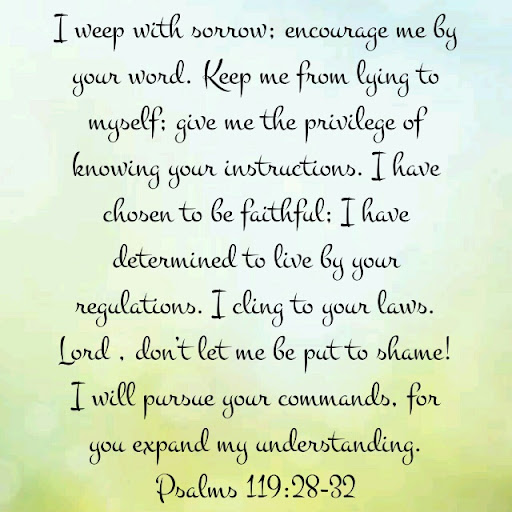 I weep with sorrow; encourage me by
your word. Keep me from lying to
myself; give me the privilege of
knowing your instructions. I have
chosen to be faithful; I have
determined to live by your
regulations. I cling to your laws.
Lord , don't let me be put to shame!
I will pursue your commands, for
you expand my understanding.
Psalms 119:28-32